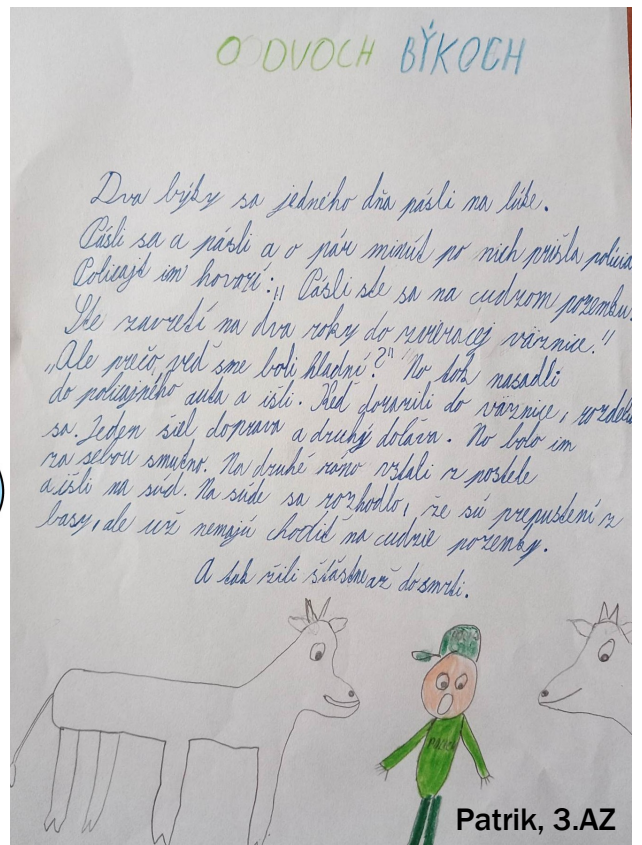 O DVOCH BÝKOCH
Dva býky sa jedného dňa pásli na lúke.
Pásli sa a pásli a o pár minút po nich prišla polícia
Policajt im hovorí: „Pásli ste sa na cudzom pozemku.
Ste zavretí na dva roky do zvieracej väznice."
„Ale prečo, veď sme boli hladní?" No tak nasadli
do policajného auta a išli. Keď dorazili do väznice, rozdeli
sa. Jeden šiel doprava a druhý doľava. No bolo im
za sebou smutno. Na druhé ráno vstali z postele
a išli na súd. Na súde sa rozhodlo, že sú prepustení z
basy, ale už nemajú chodiť na cudzie pozemky.
A tak žili šťastne až do smrti.
Patrik, 3.AZ